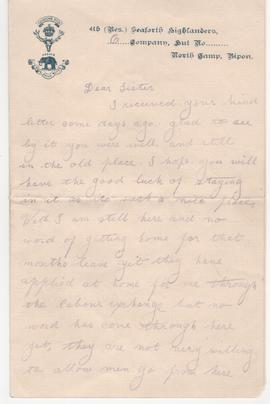 4th (Res.) Seaforth Highlanders,
C Company, Hut No.........
North Camp, Ripon.
Dear Sister
I received your kind
letter some days ago. glad to see
by it you were well and still
in the old place. I hope you will
have the good luck of staying
in it as its such a nice place.
Well I am still here and no
word of getting home for that
months leave yet they have
applied at home for me through
the Labour exchange but no
word has come through here
yet, they are not very willing
to allow men go from here